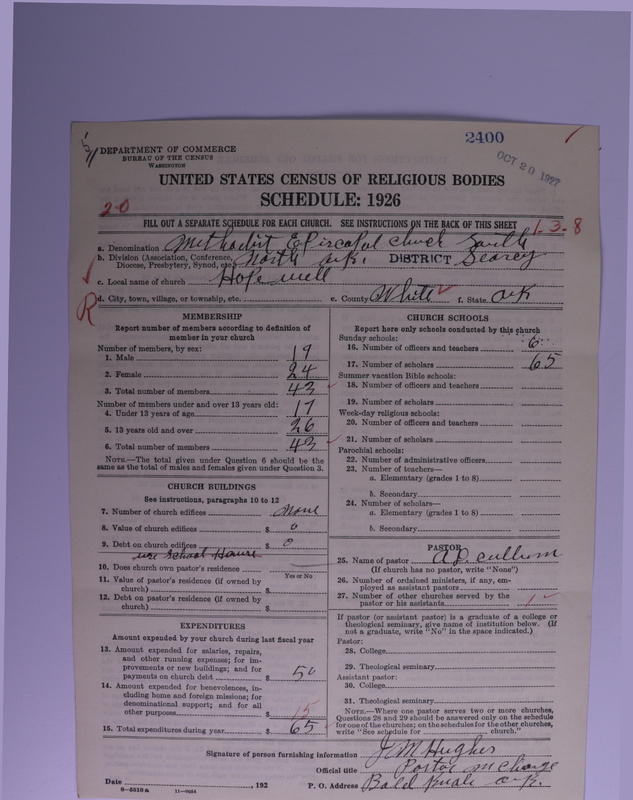 2400
OCT 20 1927
DEPARTMENT OF COMMERCE
BUREAU OF THE CENSUS
WASHINGTON
UNITED STATES CENSUS OF RELIGIOUS BODIES
SCHEDULE: 1926
20
FILL OUT A SEPARATE SCHEDULE FOR EACH CHURCH. SEE INSTRUCTIONS ON THE BACK OF THIS SHEET
1-3-8
a. Denomination Methodist Episcopal Church South
b. Division (Association, Conference, Diocese, Presbytery, Synod, etc.) North Ark. DISTRICT Searcy
c. Local name of church Hopewell
R
d. City, town, village, or township, etc. e. County White f. State Ark
MEMBERSHIP
Report number of members according to definition of
member in your church
Number of members, by sex:
1. Male 19
2. Female 24
3. Total number of members 43
Number of members under and over 13 years old:
4. Under 13 years of age 17
5. 13 years old and over 26
6. Total number of members 43
NOTE.—The total given under Question 6 should be the
same as the total of males and females given under Question 3.
CHURCH BUILDINGS
See instructions, paragraphs 10 to 12
7. Number of church edifices none
8. Value of church edifices $ 0
9. Debt on church edifices $ 0
use School House
10. Does church own pastor's residence
Yes or No
11. Value of pastor's residence (if owned by
church) $
12. Debt on pastor's residence (if owned by
church) $
EXPENDITURES
Amount expended by your church during last fiscal year
13. Amount expended for salaries, repairs,
and other running expenses; for im-
provements or new buildings; and for
payments on church debt $ 50
14. Amount expended for benevolences, in-
cluding home and foreign missions; for
denominational support; and for all
other purposes $ 15
15. Total expenditures during year $ 65
CHURCH SCHOOLS
Report here only schools conducted by this church
Sunday schools:
16. Number of officers and teachers 6
17. Number of scholars 65
Summer vacation Bible schools:
18. Number of officers and teachers
19. Number of scholars
Week-day religious schools:
20. Number of officers and teachers
21. Number of scholars
Parochial schools:
22. Number of administrative officers
23. Number of teachers—
a. Elementary (grades 1 to 8)
b. Secondary
24. Number of scholars—
a. Elementary (grades 1 to 8)
b. Secondary
PASTOR
25. Name of pastor A.D. Cullum
(If church has no pastor, write "None")
26. Number of ordained ministers, if any, em-
ployed as assistant pastors
27. Number of other churches served by the
pastor or his assistants 1
If pastor (or assistant pastor) is a graduate of a college or
theological seminary, give name of institution below. (If
not a graduate, write "No" in the space indicated.)
Pastor:
28. College
29. Theological seminary
Assistant pastor:
30. College
31. Theological seminary
NOTE.—Where one pastor serves two or more churches,
Questions 28 and 29 should be answered only on the schedule
for one of the churches; on the schedules for the other churches,
write "See schedule for church."
Signature of person furnishing information J. M. Hughes
Official title Pastor in charge
Date , 192 P. O. Address Bald Knob Ark.
8-5518a 11-9054